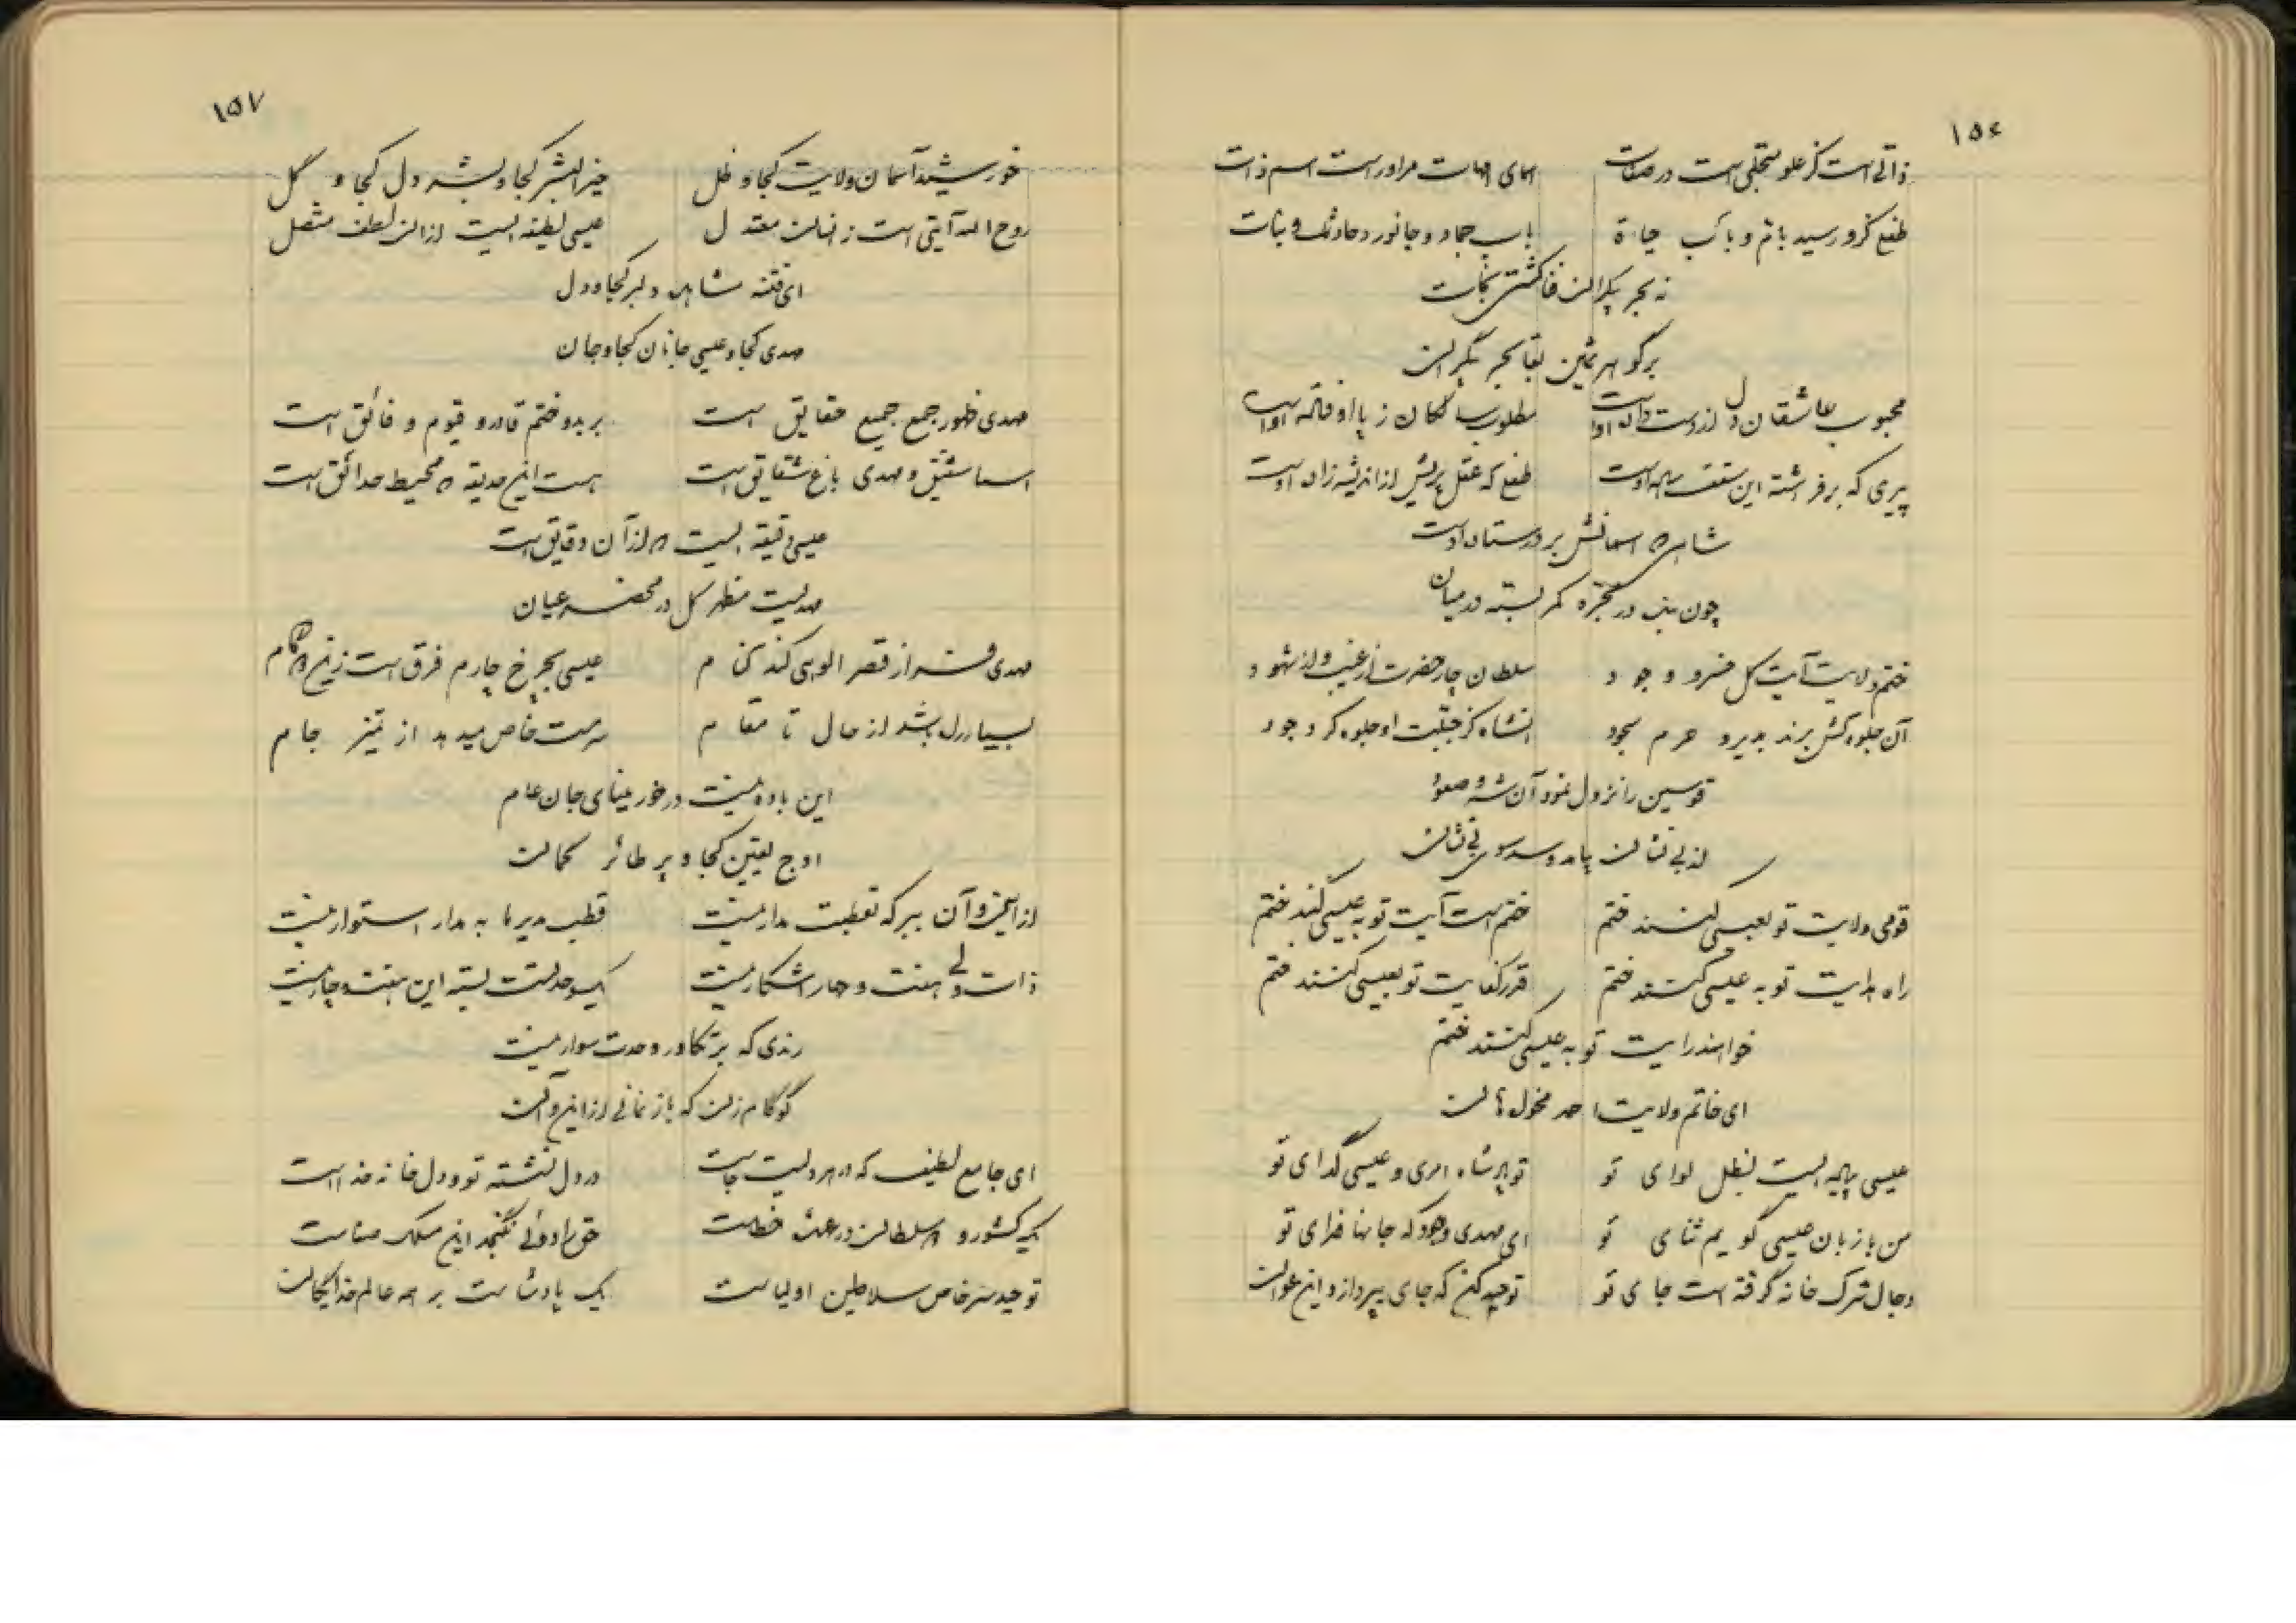 ۱۵۶
ذاتی است کز علو متجلی است در صفات اسمای امهات مر او راست اسم ذات
طفلی کزو رسید بام و باب حیاة باب جماد و جانور و حادث و نبات
نه بحر بیکران فنا کشتی نجات
بر گوهر ثمین بقا بحر بیکران
محبوب عاشقان دل از دست داده اوست مطلوب سالکان ز پا اوفتاده اوست
پیری که برفراشته این سقف ساده اوست طفلی که عقل پیش از اندیشه زاده اوست
شاهی که آسمانش بر در ستاده اوست
چون بنده در مجره کمر بسته در میان
ختم ولایت آیت کل سر وجود سلطان چار حضرت از غیب و از شهود
آن جلوه کش برند بدیر و حرم سجود آنشاه کز جبلت او جلوه کرد جود
قوسین را نزول نمود آن شه و صعود
از بی نشان پیامد و شد سوی بی نشان
قومی ولایت تو بعیسی کنند ختم ختم است آیت تو به عیسی کنند ختم
راه هدایت تو به عیسی کنند ختم قدر کفایت تو بعیسی کنند ختم
خواهند رایت تو به عیسی کنند ختم
ای خاتم ولایت احمد
عیسی پیاله ایست بظل لوای تو تو پادشاه امری و عیسی گدای تو
من با زبان عیسی گویم ثنای تو ای مهدی وجود که جانها فدای تو
دجال شرک خانه گرفته است جای تو توحید کن که جای بپردازد این عوان
۱۵۷
خورشید آسمان ولایت کجا و ظل خیر البشر کجا و بشر دل کجا و گل
روح اله آیتی است ز انسان معتدل عیسی لطیفه ایست از آن لطف متصل
ای فتنه شاهد دلبر کجا و دل
مهدی کجا و عیسی جانان کجا و جان
مهدی ظهور جمع جمیع حقایق است بر بدو و ختم قادر و قیوم و فائق است
اسما شقیق و مهدی باغ شقایق است هست این حدیقه که محیط حدائق است
عیسی دقیقه ایست که از آن دقایق است
مهدیست مظهر کل در محضر عیان
مهدی فراز قصر الوهی کند کنام عیسی بچرخ چارم فرق است زین دو گام
بسیار دل بشد از حال تا مقام سرمست خاص میدهد از تمیز جام
این باده نیست در خور مینای جان عام
اوج یقین کجا و پر طائر گمان
از این و آن ببر که تعطیت مدار نیست قطب مدیر ما به مدار استوار نیست
ذات ولی بهفت و چهار آشکار نیست یکوحدتست بسته این هفت و چار نیست
رندی که بر تکاور وحدت سوار نیست
گو گام زن که باز نمانی از این و آن
ای جامع لطیف که در هر دلیت جاست در دل نشسته تو و دل خانه خداست
یک کشور و دو سلطان در عدل خطاست حق را دوئی نگنجد این مسلک صفاست
توحید سر خاص سلاطین اولیاست یک پادشاست بر همه عالم خدایگان